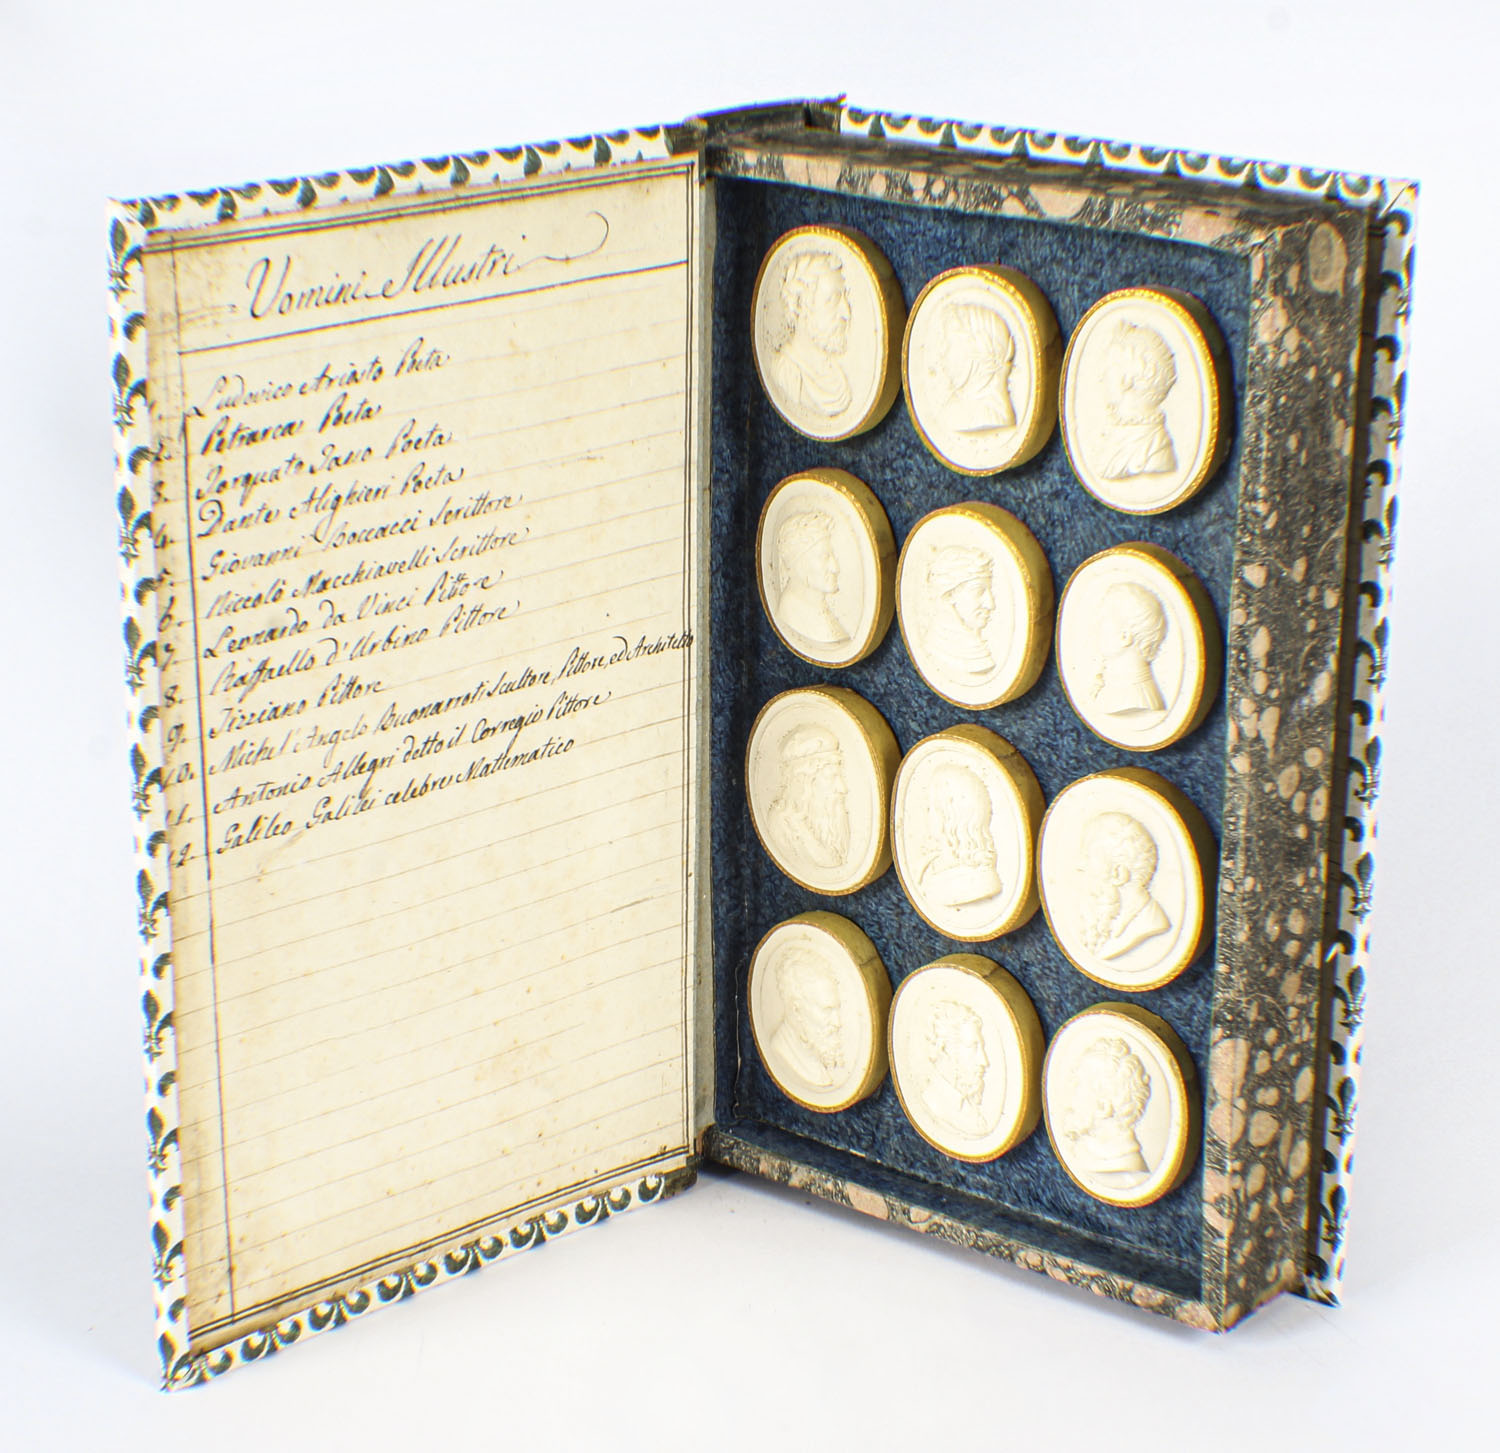 Uomini Illustri
1. Ludovico Ariosto Poeta
2. Petrarca Poeta
3. Torquato Tasso Poeta
4. Dante Alighieri Poeta
5. Giovanni Boccacci Scrittore
6. Niccolò Macchiavelli Scrittore
7. Leonardo da Vinci Pittore
8. Raffaello d'Urbino Pittore
9. Tizziano Pittore
10. Michel'Angelo Buonarroti Scultore, Pittore, ed Architetto
11. Antonio Allegri detto il Corregio Pittore
12. Galileo Galilei celebre Mattematico